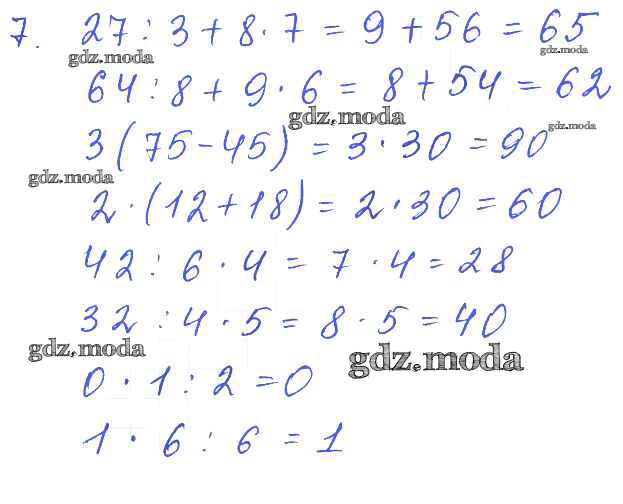 7. 27 : 3 + 8 · 7 = 9 + 56 = 65
gdz.moda gdz.moda
64 : 8 + 9 · 6 = 8 + 54 = 62
gdz.moda gdz.moda
3 (75 - 45) = 3 · 30 = 90
gdz.moda
2 · (12 + 18) = 2 · 30 = 60
42 : 6 · 4 = 7 · 4 = 28
32 : 4 · 5 = 8 · 5 = 40
gdz.moda gdz.moda
0 · 1 : 2 = 0
1 · 6 : 6 = 1